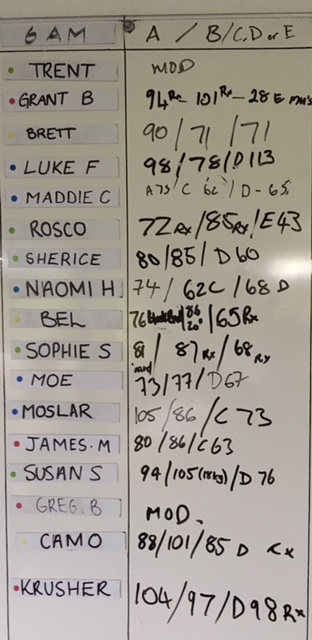 6 AM A / B/C,D or E
TRENT MOD
GRANT B 94Rx- 101Rx- 28 E
BRETT 90 / 71 / 71
LUKE F 98/78/D113
MADDIE C A75/C 62/D-65
ROSCO 72Rx/85Rx/E43
SHERICE 80/85/D60
NAOMI H 74/ 62C /68 D
BEL 76 /65Rx
SOPHIE S 81/ 87Rx/68Rx
MOE 73/77/D67
MOSLAR 105/86/C 73
JAMES.M 80/86/C63
SUSAN S 94/105 /D 76
GREG.B MOD.
CAMO 88/101/85 D
KRUSHER 104/97/D98Rx